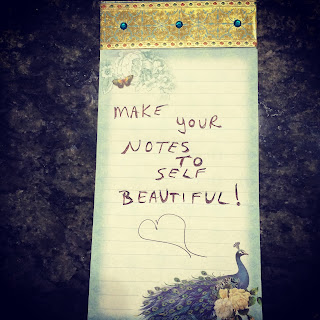 MAKE YOUR
NOTES
TO
SELF
BEAUTIFUL!